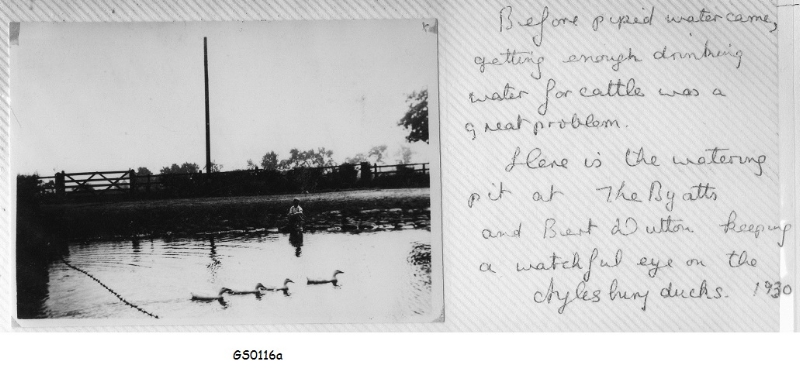 Before piped water came,
getting enough drinking
water for cattle was a
great problem.
Here is the watering
pit at The Byatts
and Bert Dutton keeping
a watchful eye on the
Aylesbury ducks. 1930
GS0116a